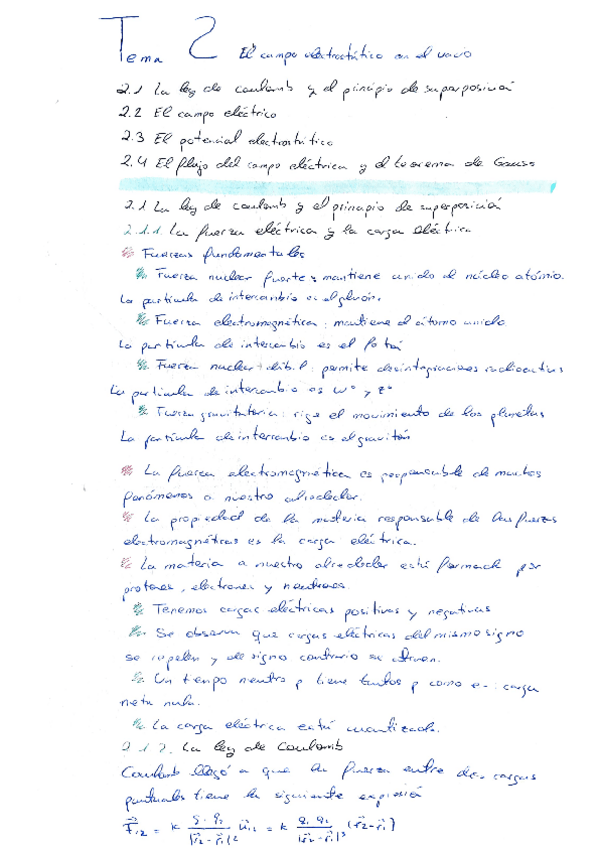 Tema 2 El campo electrostático en el vacío
2.1 La ley de coulomb y el principio de superposición
2.2 El campo eléctrico
2.3 El potencial electrostático
2.4 El flujo del campo eléctrica y el teorema de Gauss
2.1 La ley de coulomb y el principio de superposición
2.1.1 La fuerza eléctrica y la carga eléctrica
Fuerzas fundamentales
Fuerza nuclear fuerte: mantiene unido el núcleo atómio.
La partícula de intercambio es el gluón.
Fuerza electromagnética: mantiene el átomo unido
La partícula de intercambio es el fotón
Fuerza nuclear débil: permite desintegraciones radioactivas
La partícula de intercambio es W° y Z°
Fuerza gravitatoria: rige el movimiento de los planetas
La partícula de intercambio es el gravitón
La fuerza electromagnética es responsable de muchos
fenómenos a nuestro alrededor.
La propiedad de la materia responsable de las fuerzas
electromagnéticas es la carga eléctrica.
La materia a nuestro alrededor está formada por
protones, electrones y neutrones.
Tenemos cargas eléctricas positivas y negativas
Se observa que cargas eléctricas del mismo signo
se repelen y de signo contrario se atraen.
Un tiempo neutro p tiene tantos p como e-: carga
neta nula.
La carga eléctrica está cuantizada.
2.1.2. La ley de Coulomb
Coulomb llegó a que la fuerza entre dos cargas
puntuales tiene la siguiente expresión
F⃗₁₂ = k q₁ q₂ / |r⃗₂-r⃗₁|² u⃗₁₂ = k q₁ q₂ / |r⃗₂-r⃗₁|³ (r⃗₂-r⃗₁)